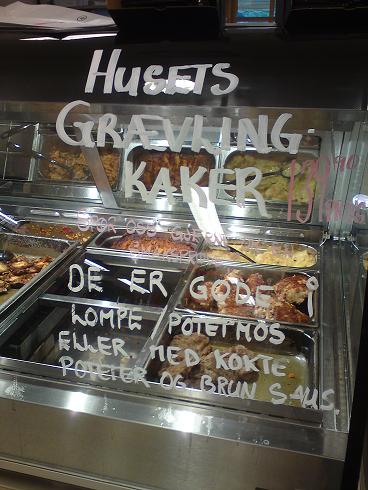 HUSETS
GRÆVLING
KAKER
DE ER GODE i
LOMPE POTETMOS
ELLER MED KOKTE
POTETER OG BRUN SAUS.